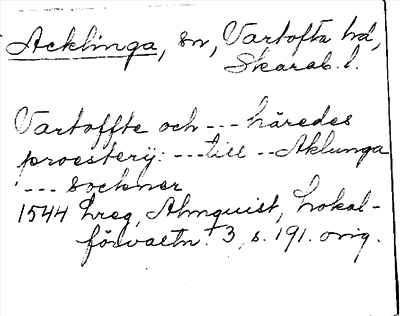 Acklinga, sn, Vartofta hd,
Skarab. l.
Vartoffte och --- häredes
proesterij: --- till -- Aklunga
--- sockner
1544 Lreg, Almquist, Lokal-
förvaltn. 3, s. 191. orig.